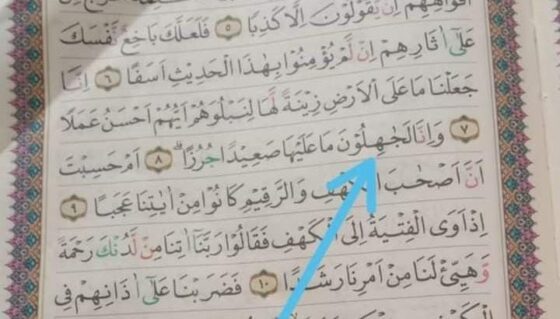 اَفْوَاهِهِمْ اِنْ يَّقُوْلُوْنَ اِلَّا كَذِبًا ٥ فَلَعَلَّكَ بَاخِعٌ نَّفْسَكَ
عَلٰٓى اٰثَارِهِمْ اِنْ لَّمْ يُؤْمِنُوْا بِهٰذَا الْحَدِيْثِ اَسَفًا ٦ اِنَّا
جَعَلْنَا مَا عَلَى الْاَرْضِ زِيْنَةً لَّهَا لِنَبْلُوَهُمْ اَيُّهُمْ اَحْسَنُ عَمَلًا
٧ وَاِنَّا لَجٰهِلُوْنَ مَا عَلَيْهَا صَعِيْدًا جُرُزًاۗ ٨ اَمْ حَسِبْتَ
اَنَّ اَصْحٰبَ وَالرَّقِيْمِ كَانُوْا مِنْ اٰيٰتِنَا عَجَبًا ٩
اِذْ اَوَى الْفِتْيَةُ اِلَى الْكَهْفِ فَقَالُوْا رَبَّنَآ اٰتِنَا مِنْ لَّدُنْكَ رَحْمَةً
وَّهَيِّئْ لَنَا مِنْ اَمْرِنَا رَشَدًا ١٠ فَضَرَبْنَا عَلٰٓى اٰذَانِهِمْ فِى